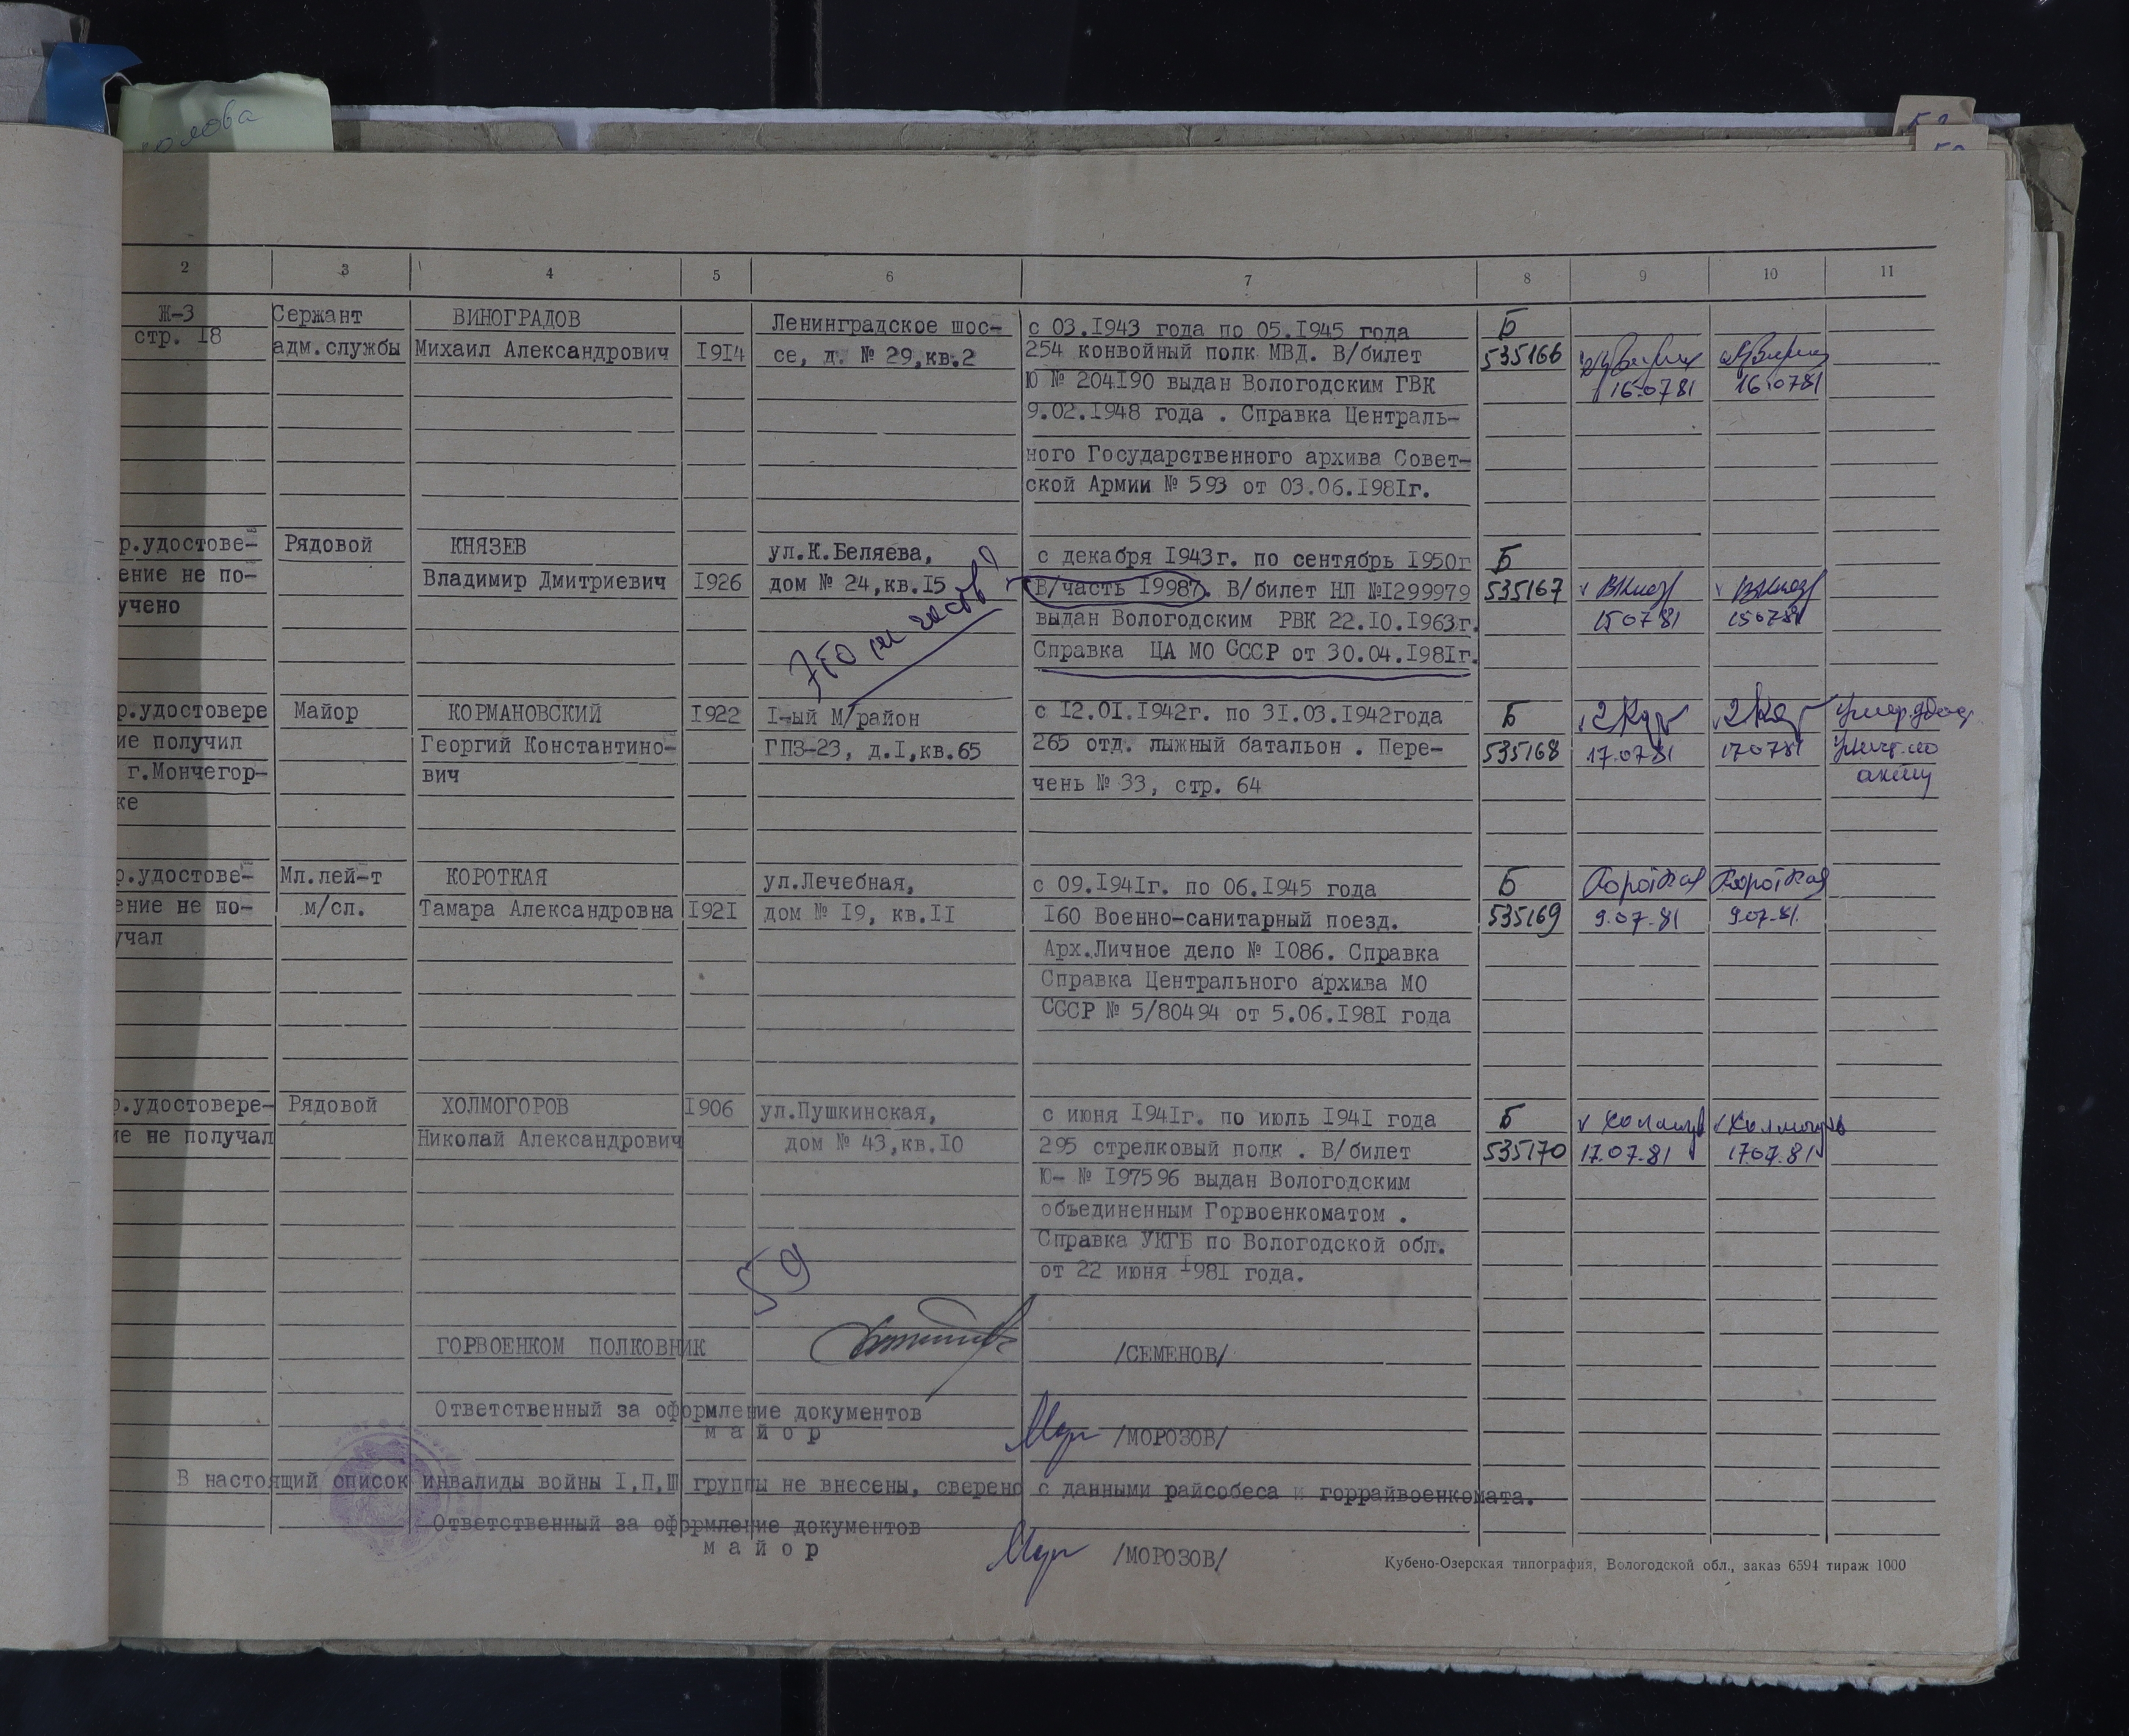 2 3 4 5 6 7 8 9 10 11
Ж-3 Сержант ВИНОГРАДОВ Ленинградское шос- с 03.1943 года по 05.1945 года Б
стр. 18 адм.службы Михаил Александрович 1914 се, д. № 29,кв.2 254 конвойный полк МВД. В/билет 535166
Ю № 204190 выдан Вологодским ГВК 16.07 81 16.0781
9.02.1948 года . Справка Централь-
ного Государственного архива Совет-
ской Армии № 593 от 03.06.1981г.
р.удостове- Рядовой КНЯЗЕВ ул.К.Беляева, с декабря 1943г. по сентябрь 1950г Б
ение не по- Владимир Дмитриевич 1926 дом № 24,кв.15 В/часть 19987. В/билет НЛ №1299979 535167
учено выдан Вологодским РВК 22.10.1963г. 15 07 81 150781
Справка ЦА МО СССР от 30.04.1981г.
р.удостовере Майор КОРМАНОВСКИЙ 1922 1-ый М/район с 12.01.1942г. по 31.03.1942года Б
ие получил Георгий Константино- ГПЗ-23, д.1,кв.65 265 отд. лыжный батальон . Пере- 535168 17.07 81 170781
г.Мончегор- вич чень № 33, стр. 64 акту
ке
р.удостове- Мл.лей-т КОРОТКАЯ ул.Лечебная, с 09.1941г. по 06.1945 года Б Короткая Короткая
ение не по- м/сл. Тамара Александровна 1921 дом № 19, кв.11 160 Военно-санитарный поезд. 535169 9.07.81 9.07.81.
учал Арх.Личное дело № 1086. Справка
Справка Центрального архива МО
СССР № 5/80494 от 5.06.1981 года
р.удостовере- Рядовой ХОЛМОГОРОВ 1906 ул.Пушкинская, с июня 1941г. по июль 1941 года Б
ие не получал Николай Александрович дом № 43,кв.10 295 стрелковый полк . В/билет 535170 17.07.81 17.07.81
Ю- № 197596 выдан Вологодским
объединенным Горвоенкоматом .
Справка УКГБ по Вологодской обл.
от 22 июня 1981 года.
59
ГОРВОЕНКОМ ПОЛКОВНИК /СЕМЕНОВ/
Ответственный за оформление документов
майор /МОРОЗОВ/
В настоящий список инвалиды войны I,П,Ш группы не внесены, сверено с данными райсобеса и горрайвоенкомата.
Ответственный за оформление документов
майор /МОРОЗОВ/
Кубено-Озерская типография, Вологодской обл., заказ 6594 тираж 1000